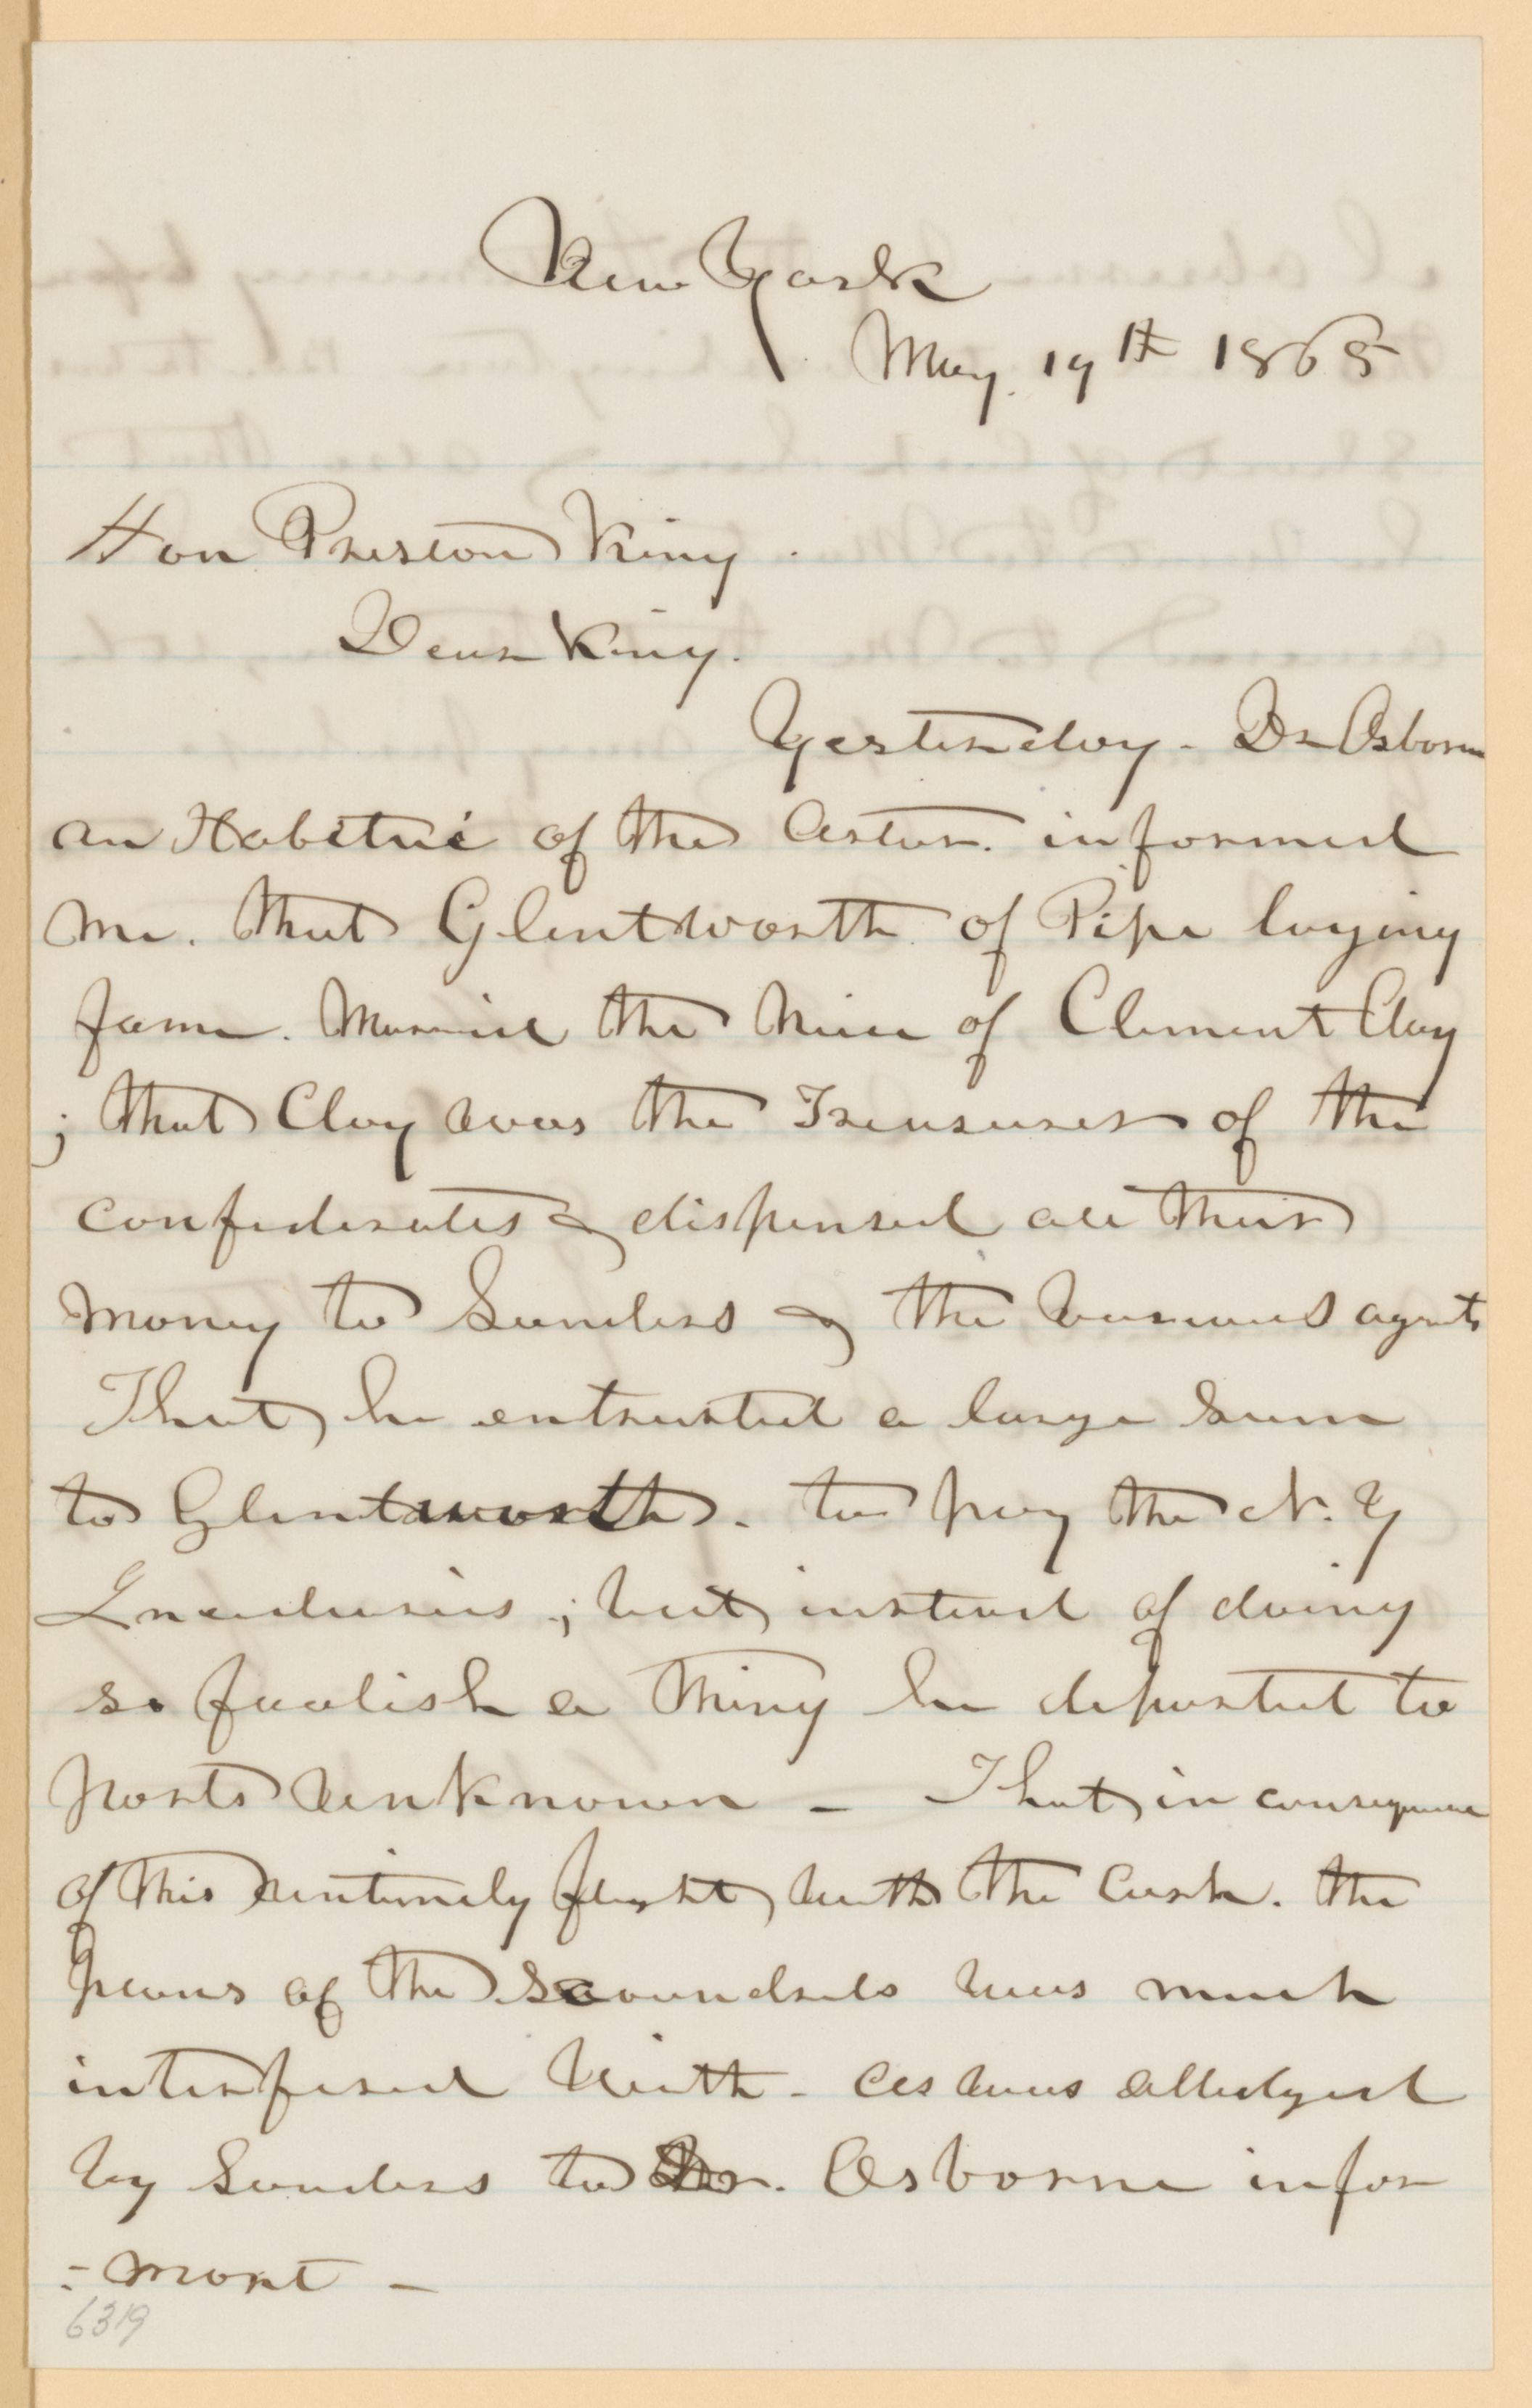 New York
May. 19th 1865
Hon Preston King.
Dear King.
Yesterday. Dr Osborne
an Habitué of the Astor. informed
me. that Glentworth of Pipe laying
fame. Married the Niece of Clement Clay
; that Clay was the Treasurer of the
confederates & dispensed all their
money to Sanders & the various agents
That he entrusted a large sum
to Glentworth. to pay the N. Y
Incendiaries ; but instead of doing
so foolish a thing he departed to
parts unknown – That in consequence
of this untimely flight with the cash. the
plans of the scoundrels was much
interfered with – as was alledged
by Sanders to Dr. Osborne infor
=mant –
6319